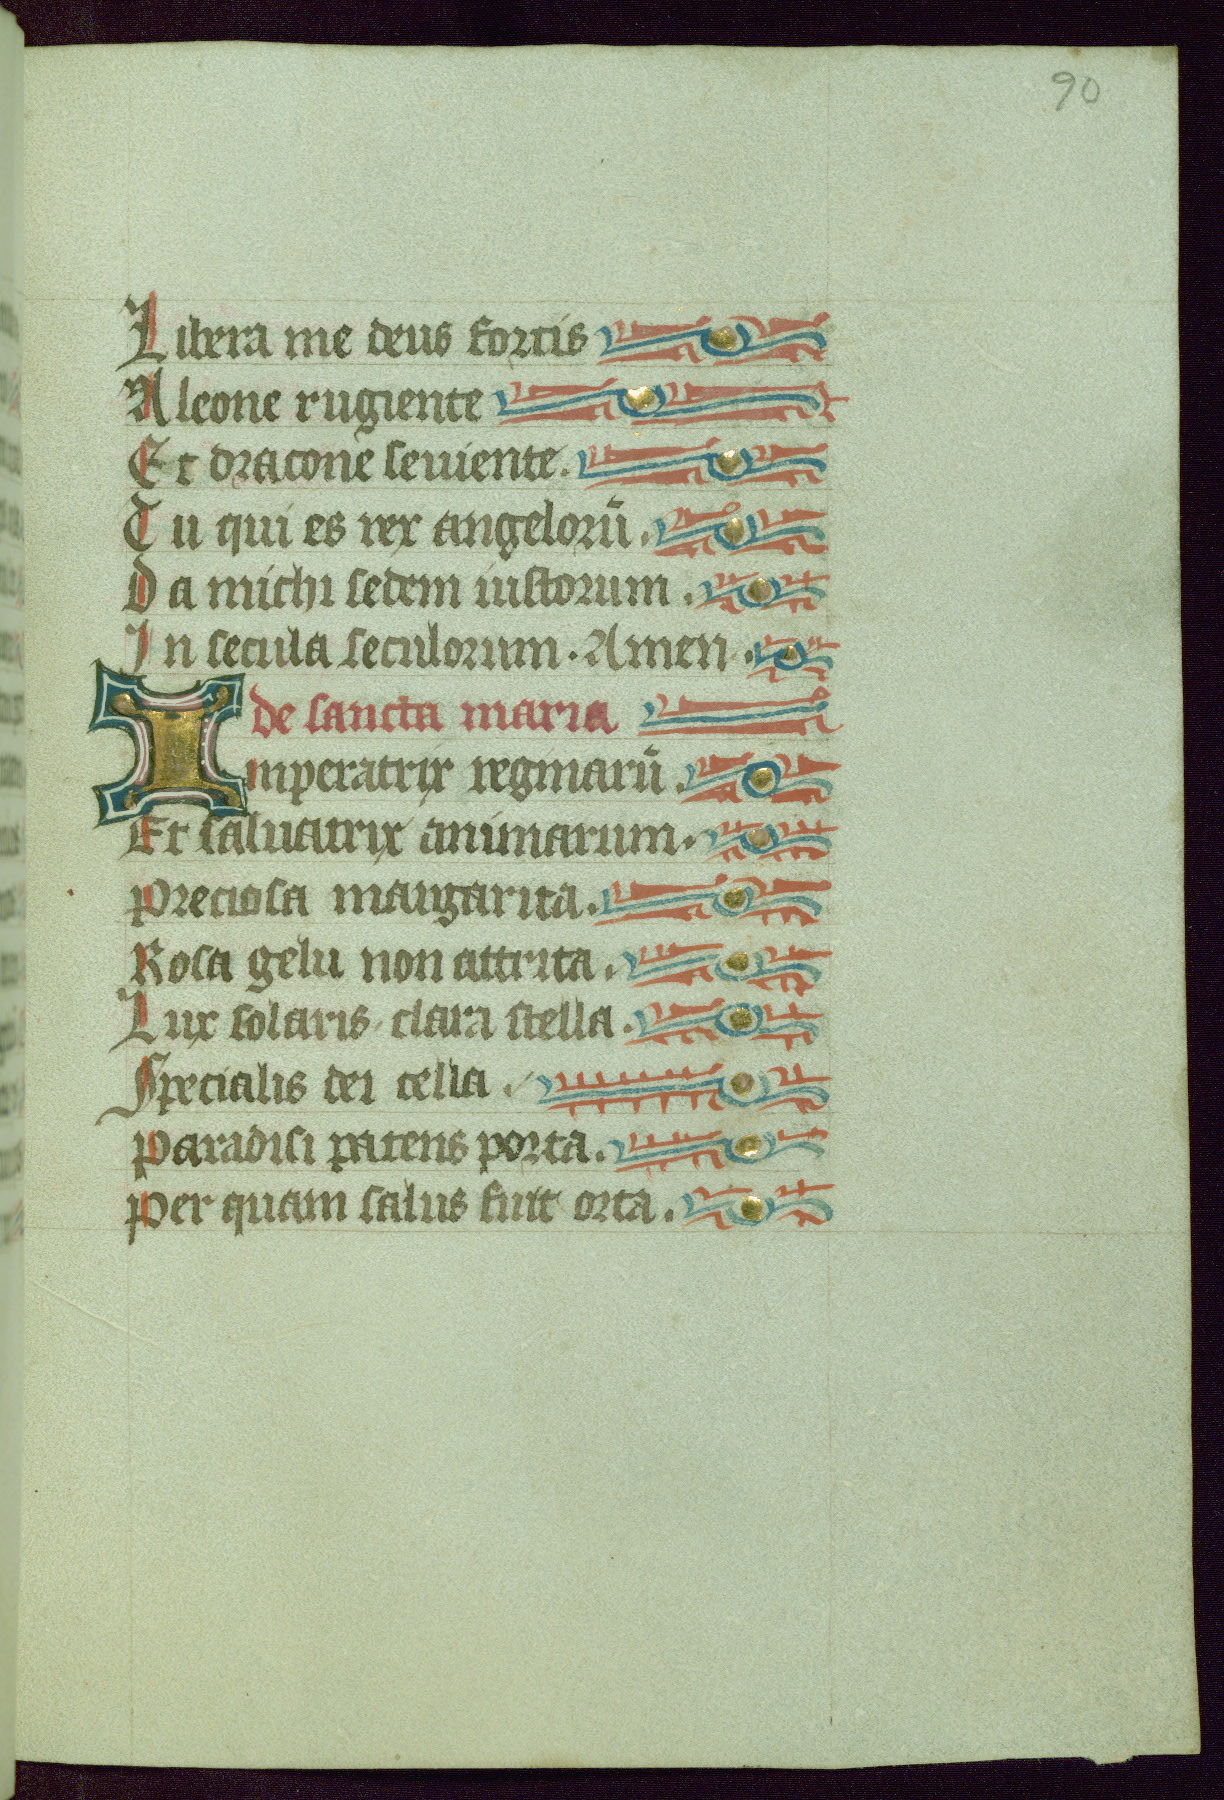 90
Libera me deus fortis
A leone rugiente
Et dracone seuiente.
Tu qui es rex angelorū.
Da michi sedem iustorum.
In secula seculorum. Amen.
de sancta maria
Imperatrix reginarū.
Et saluatrix animarum.
Preciosa margarita.
Rosa gelu non attrita.
Lux solaris clara stella.
Specialis dei cella.
Paradisi patens porta.
Per quam salus fuit orta.